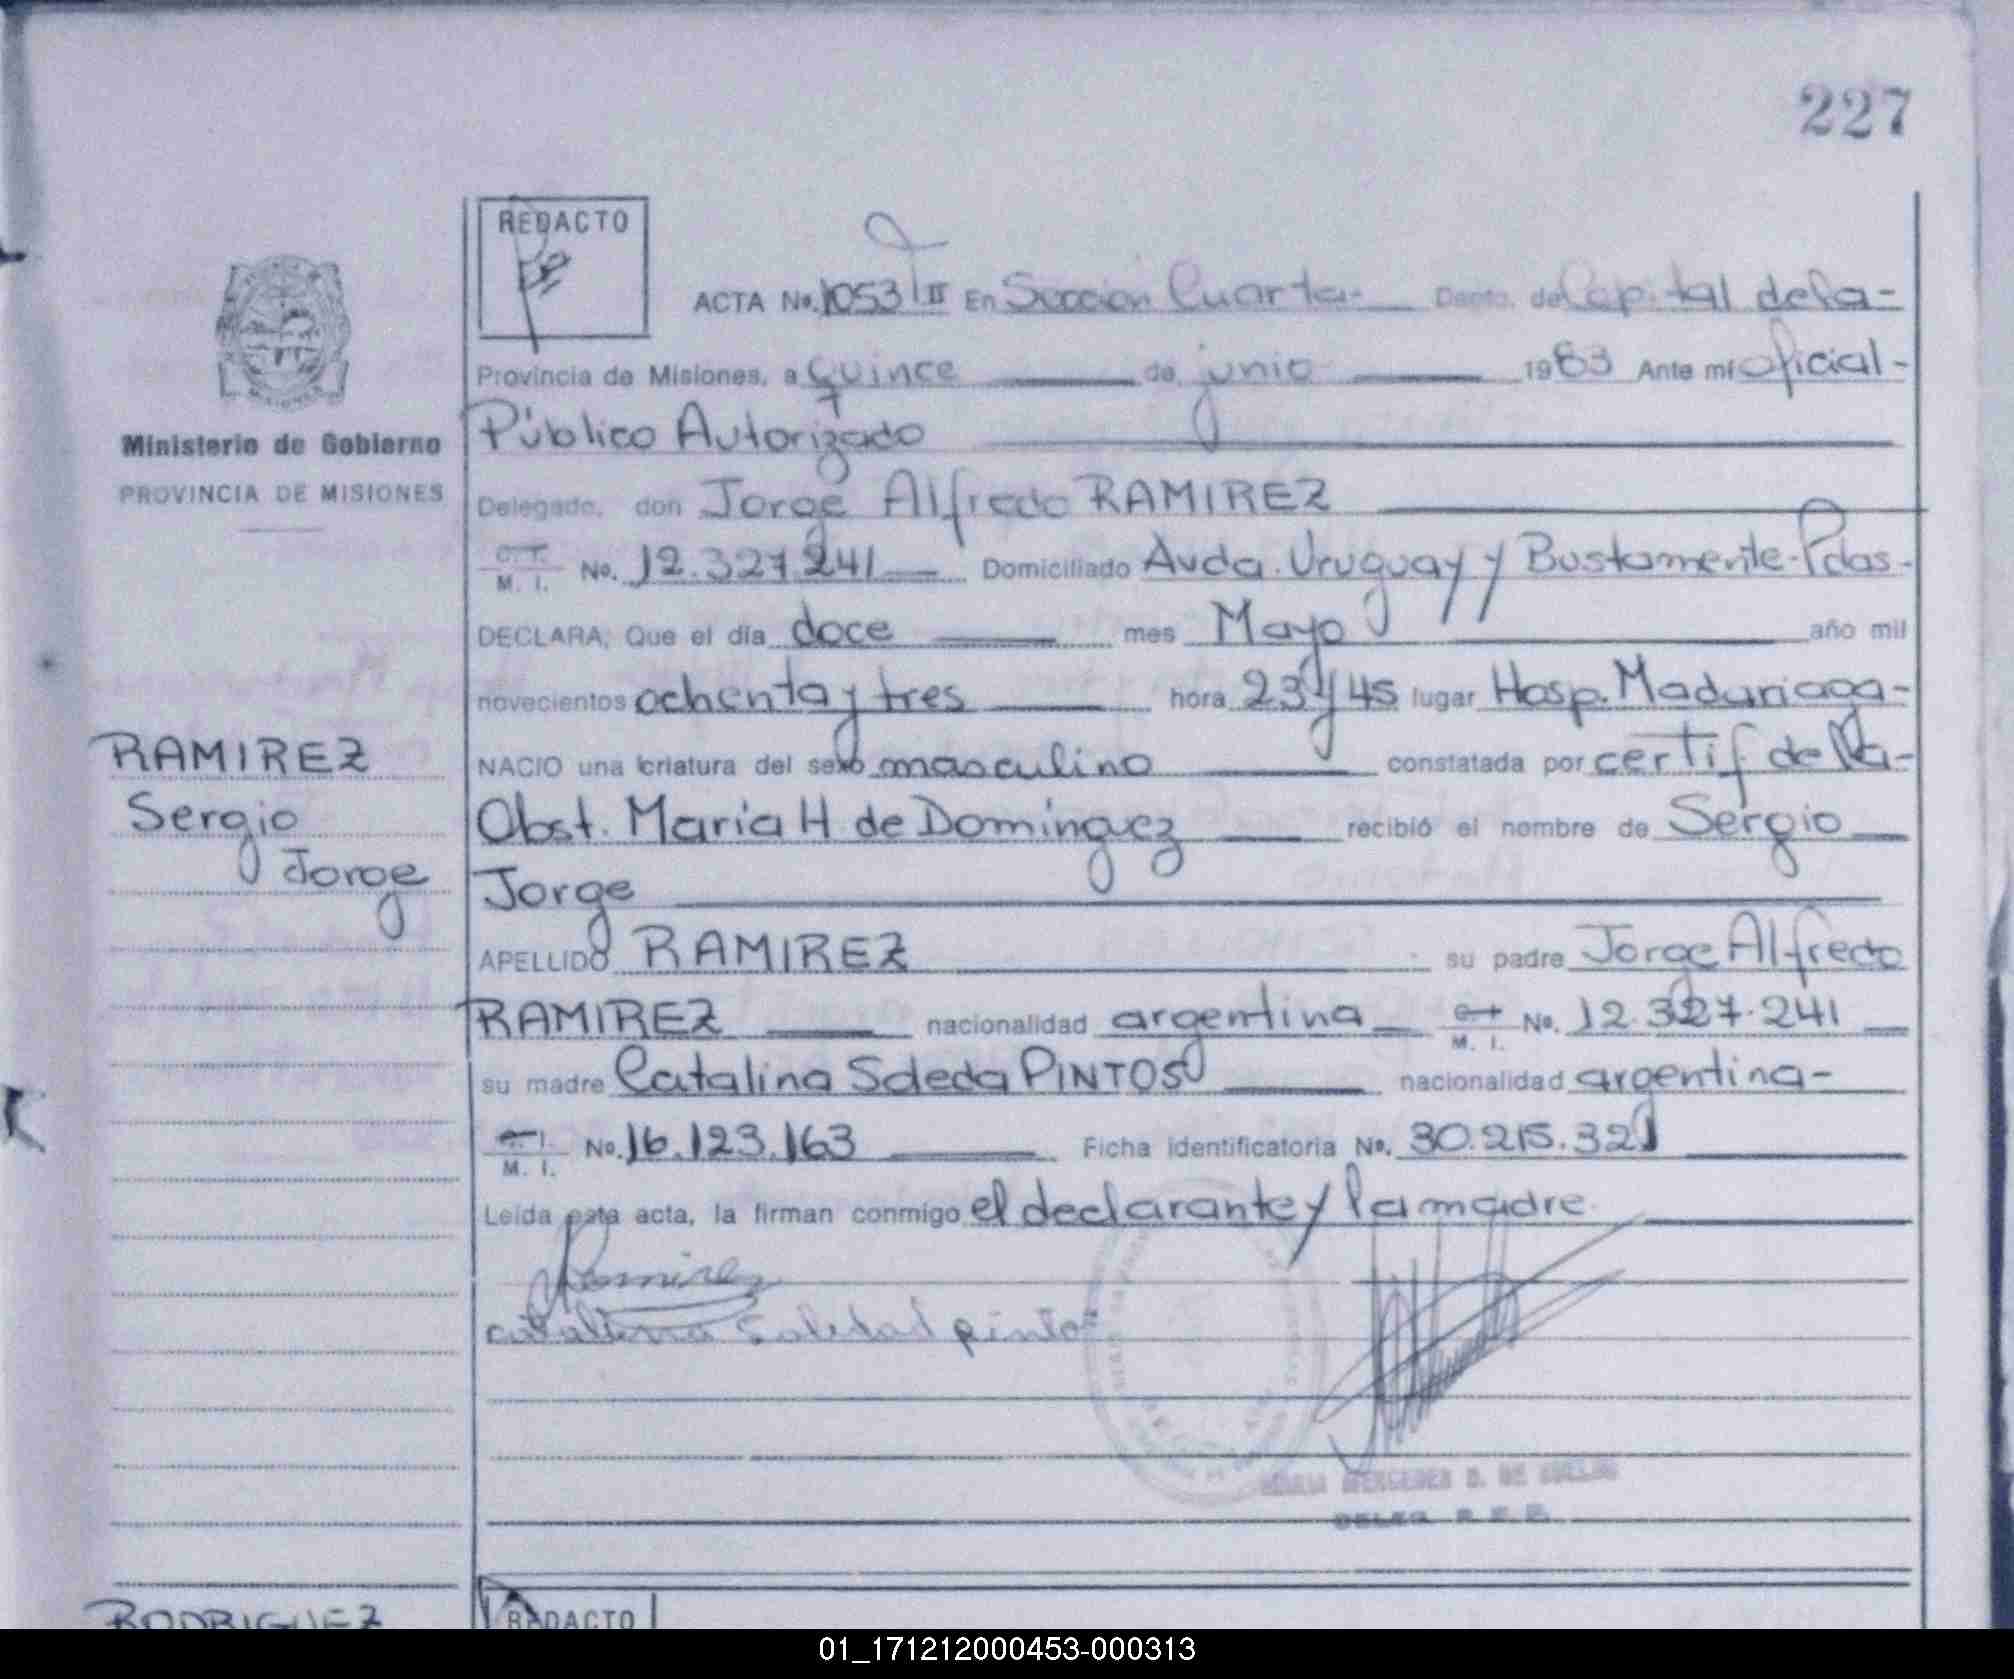 227
REDACTO
ACTA No. 1053 T II En Sección Cuarta Depto. de Capital de la-
Provincia de Misiones, a quince de junio 1983 Ante mí oficial-
Público Autorizado
Delegado, don Jorge Alfredo RAMIREZ
C. I.
M. I. No. 12.327.241 Domiciliado Avda. Uruguay y Bustamente-Pdas-
DECLARA; Que el día doce mes Mayo año mil
novecientos ochenta y tres hora 23 y 45 lugar Hosp. Madariaga-
NACIO una criatura del sexo masculino constatada por certif de la-
Obst. María H de Domínguez recibió el nombre de Sergio
Jorge
APELLIDO RAMIREZ su padre Jorge Alfredo
RAMIREZ nacionalidad argentina M. I. No. 12.327.241
su madre Catalina Soleda PINTOS nacionalidad argentina-
M. I. No. 16.123.163 Ficha identificatoria No. 30.215.321
Leída esta acta, la firman conmigo el declarante y la madre.
Ramirez
catalina Soledad pintos
Ministerio de Gobierno
PROVINCIA DE MISIONES
RAMIREZ
Sergio
Jorge
RODRIGUEZ
REDACTO
01_171212000453-000313